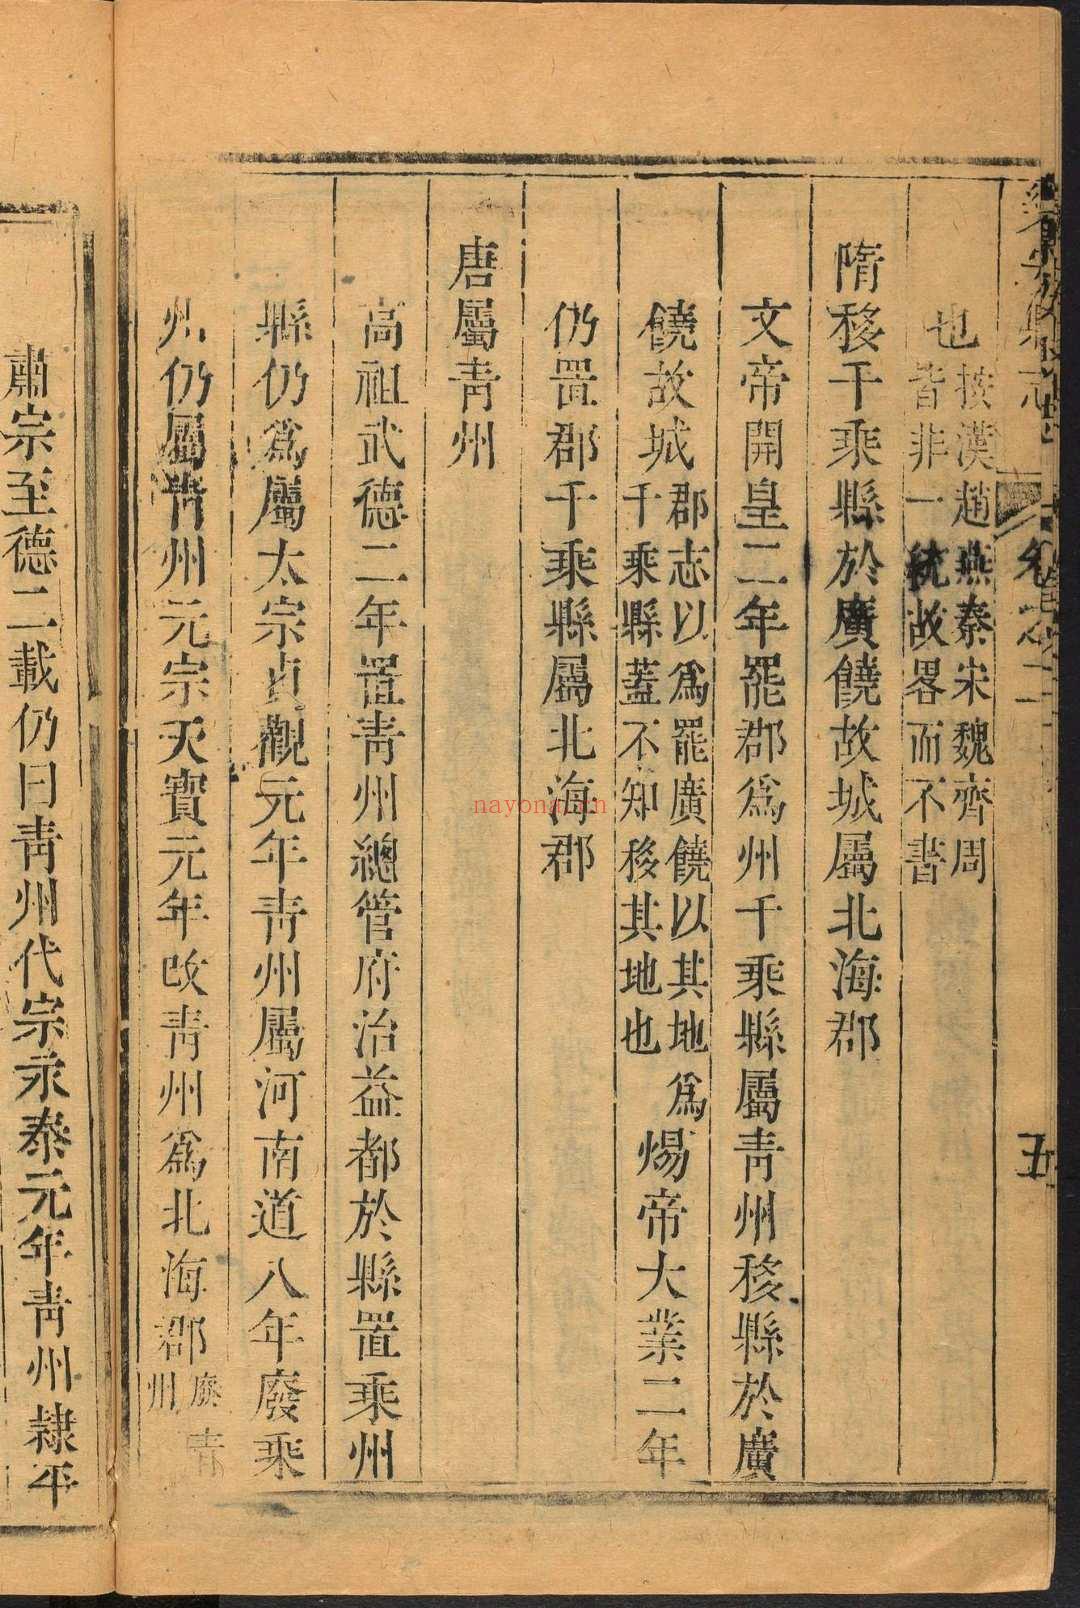 樂安縣志
卷之一
五
也按漢趙燕秦宋魏齊周皆非一統故畧而不書
隋移千乘縣於廣饒故城屬北海郡
文帝開皇二年罷郡爲州千乘縣屬青州移縣於廣
饒故城郡志以爲罷廣饒以其地爲千乘縣蓋不知移其地也煬帝大業二年
仍置郡千乘縣屬北海郡
唐屬青州
高祖武德二年置青州總管府治益都於縣置乘州
縣仍爲屬太宗貞觀元年青州屬河南道八年廢乘
州仍屬青州元宗天寶元年改青州爲北海郡廢青州
肅宗至德二載仍曰青州代宗永泰元年青州隸平
nayona.cn